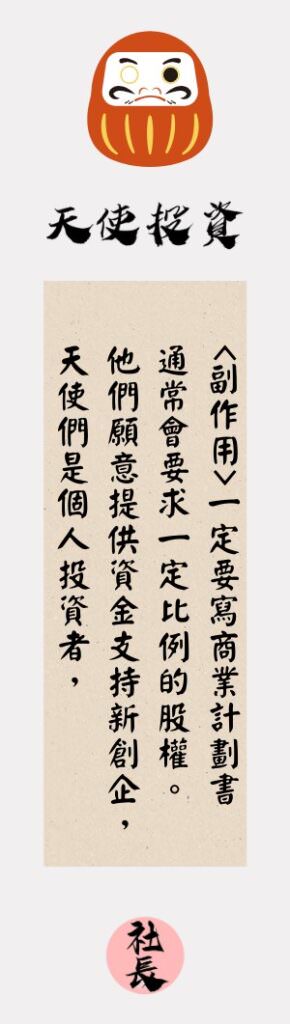 天使投資
天使們是個人投資者，
他們願意提供資金支持新創企，
通常會要求一定比例的股權。
<副作用>一定要寫商業計劃書
社長